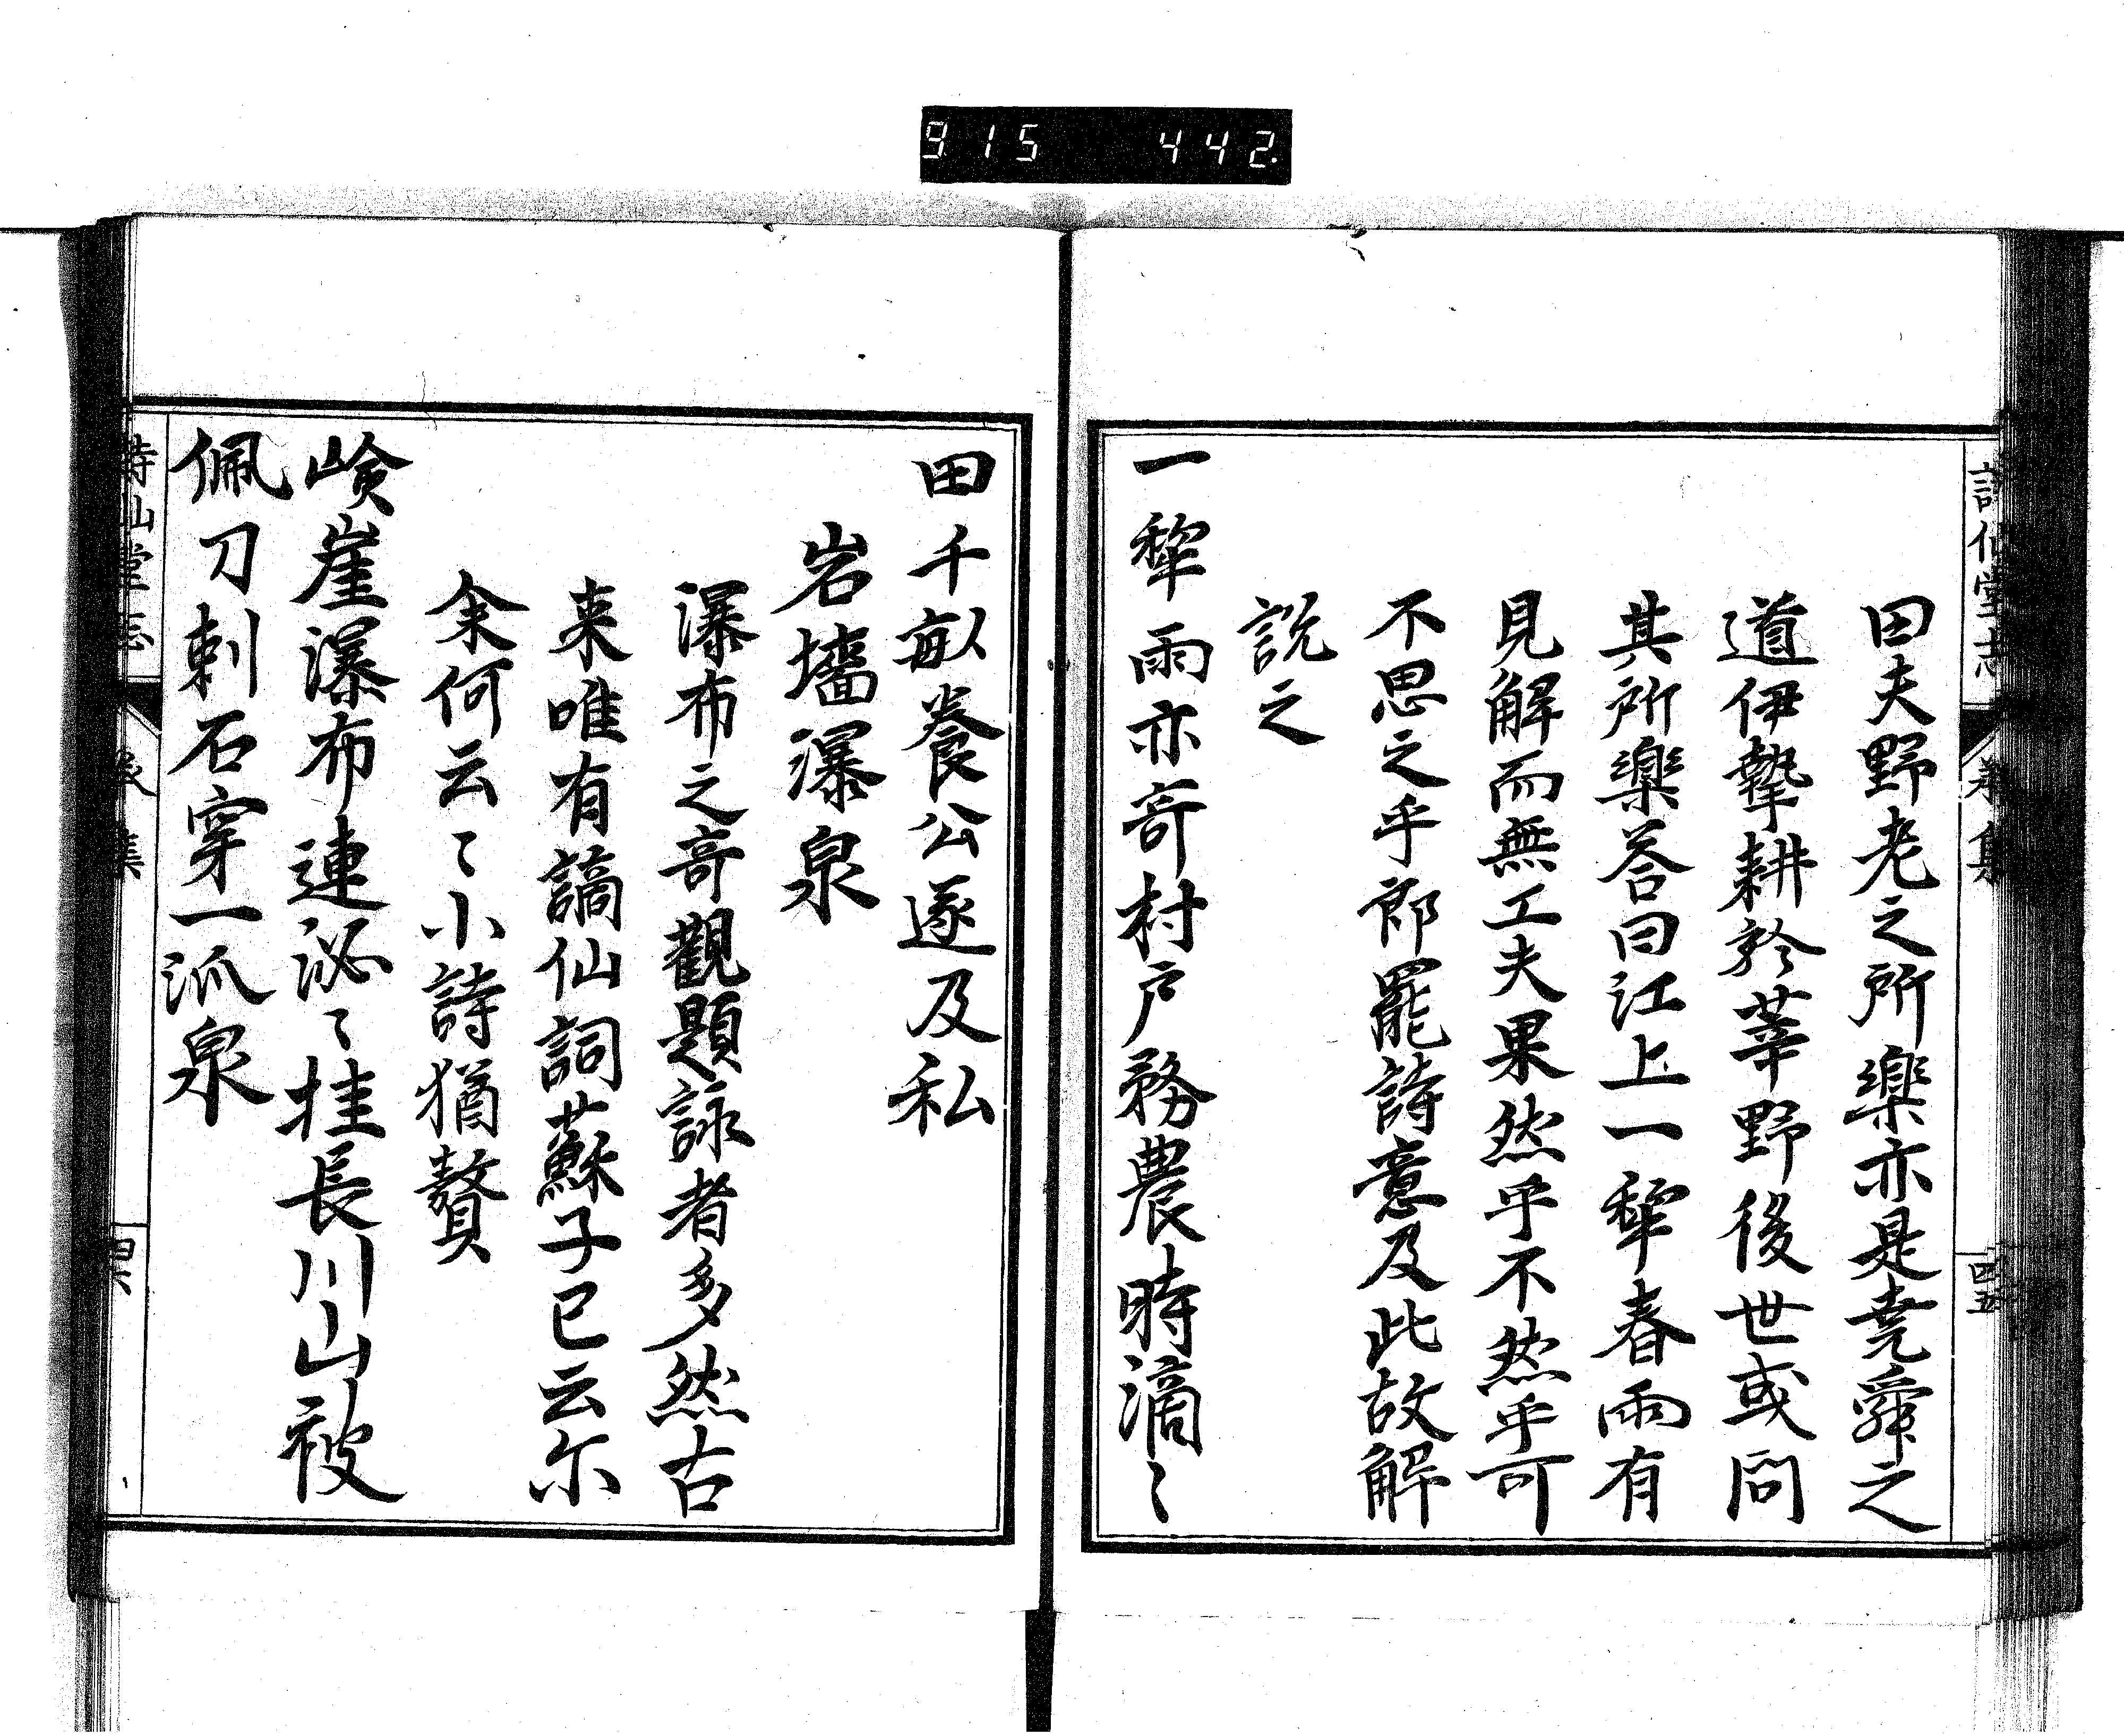 915 442.
詩仙堂志 義集 四五
田夫野老之所樂亦是堯舜之
道伊摯耕於莘野後世或問
其所樂荅曰江上一犂春雨有
見解而無工夫果然乎不然乎可
不思之乎郎罷詩意及此故解
說之
一犂雨亦奇村戸務農時滴〻
田千畝養公遂及私
岩墻瀑泉
瀑布之奇觀題詠者多然古
来唯有謫仙詞蘇子已云尓
余何云〻小詩猶贅
嶮崖瀑布連泌〻挂長川山被
佩刀刺石穿一派泉
詩仙堂志 義集 四六